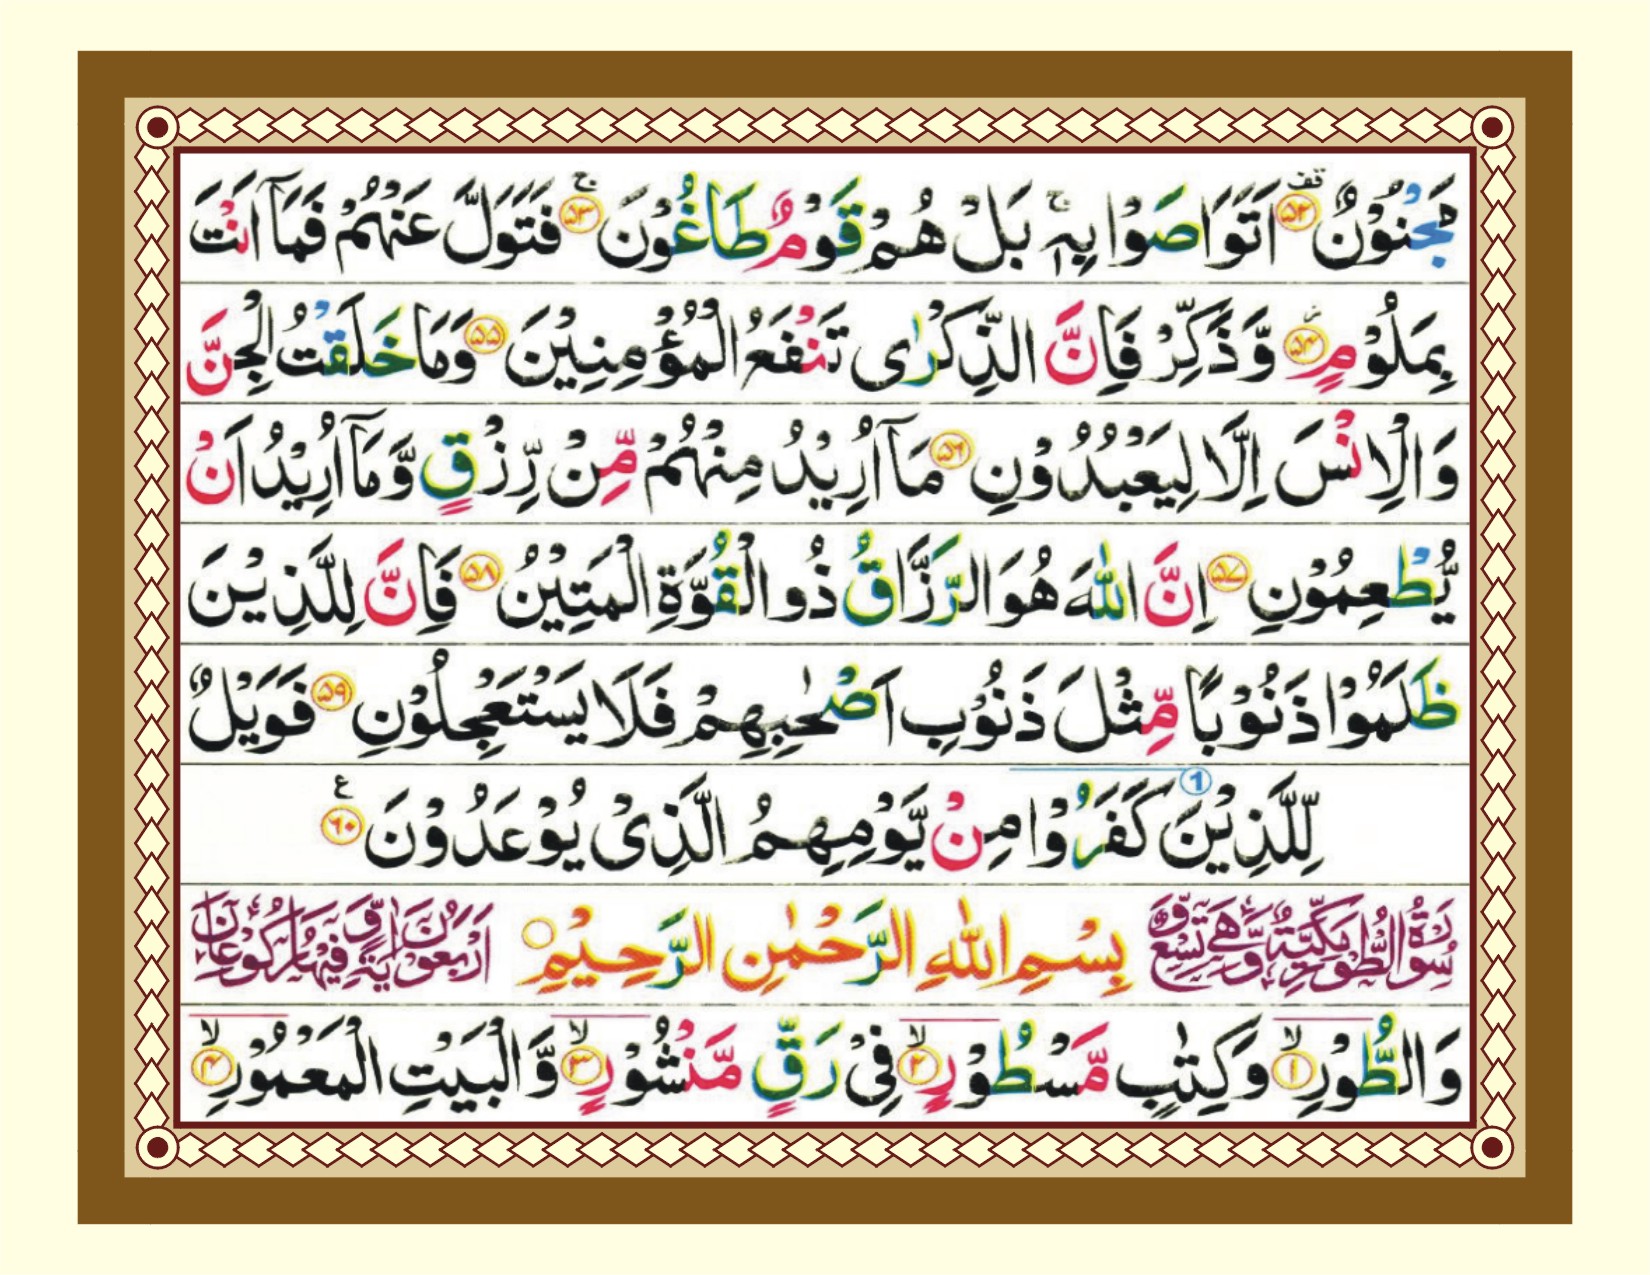 مَجْنُوْنٌ ۟ۚ‏﴿۵۲﴾ قف اَتَوَاصَوْا بِهٖ ۚ بَلْ هُمْ قَوْمٌ طَاغُوْنَ ۚ﴿۵۳﴾ فَتَوَلَّ عَنْهُمْ فَمَاۤ اَنْتَ
بِمَلُوْمٍ ﴿۵۴﴾ وَّ ذَكِّرْ فَاِنَّ الذِّكْرٰى تَنْفَعُ الْمُؤْمِنِيْنَ ﴿۵۵﴾ وَمَا خَلَقْتُ الْجِنَّ
وَالْاِنْسَ اِلَّا لِيَعْبُدُوْنِ ﴿۵۶﴾ مَاۤ اُرِيْدُ مِنْهُمْ مِّنْ رِّزْقٍ وَّمَاۤ اُرِيْدُ اَنْ
يُّطْعِمُوْنِ ﴿۵۷﴾ اِنَّ اللّٰهَ هُوَ الرَّزَّاقُ ذُو الْقُوَّةِ الْمَتِيْنُ ﴿۵۸﴾ فَاِنَّ لِلَّذِيْنَ
ظَلَمُوْا ذَنُوْبًا مِّثْلَ ذَنُوْبِ اَصْحٰبِهِمْ فَلَا يَسْتَعْجِلُوْنِ ﴿۵۹﴾ فَوَيْلٌ
لِّلَّذِيْنَ 1 كَفَرُوْا مِنْ يَّوْمِهِمُ الَّذِىْ يُوْعَدُوْنَ ﴿۶۰﴾ ع
سُوْرَةُ الطُّوْرِ مَكِّيَّةٌ وَّهِىَ تِسْعٌ وَّ بِسْمِ اللّٰهِ الرَّحْمٰنِ الرَّحِيْمِ اَرْبَعُوْنَ اٰيَةً وَّفِيْهَا رُكُوْعَانِ
وَالطُّوْرِ ۙ﴿۱﴾ وَكِتٰبٍ مَّسْطُوْرٍ ۙ﴿۲﴾ فِىْ رَقٍّ مَّنْشُوْرٍ ۙ﴿۳﴾ وَّالْبَيْتِ الْمَعْمُوْرِ ۙ﴿۴﴾